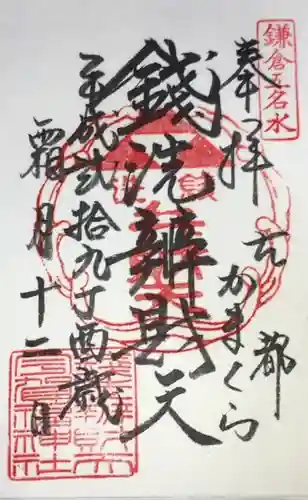 鎌倉五名水
奉拝
古都
かまくら
錢洗辨財天
平成弐拾九丁酉歳
霜月十二日